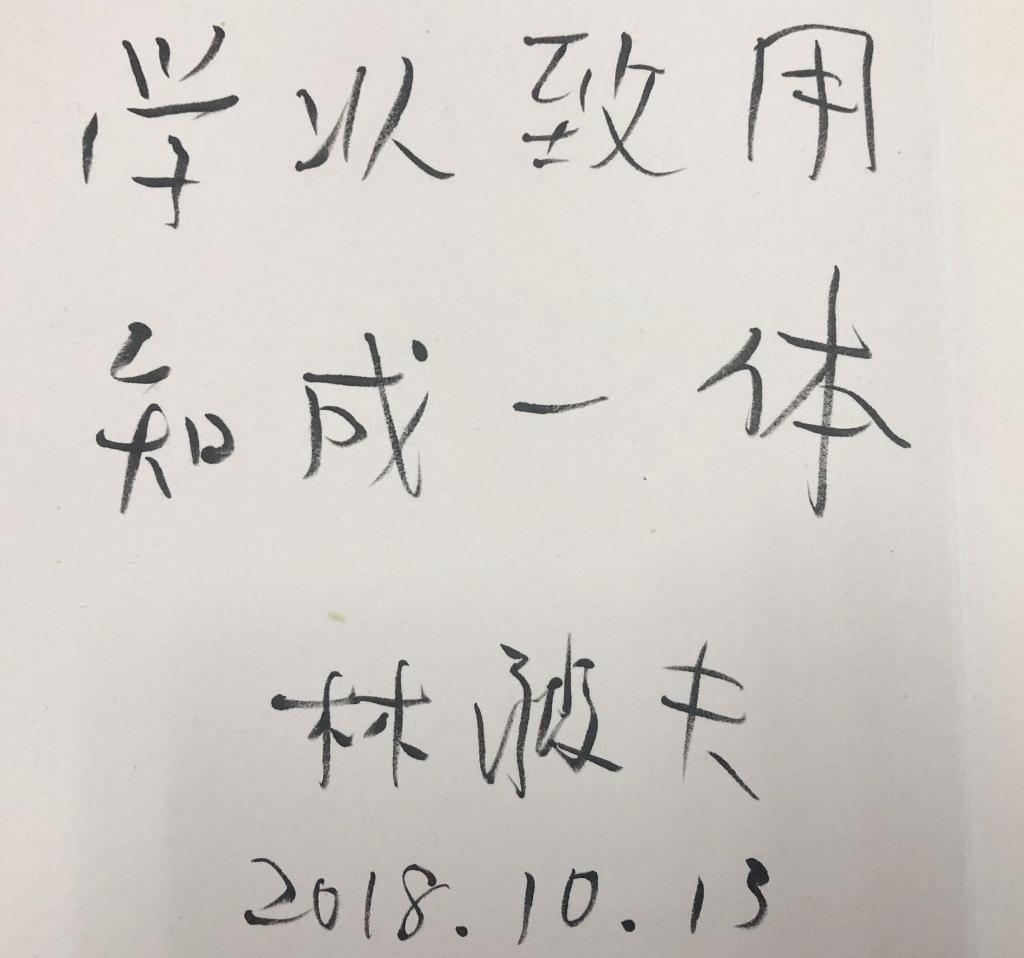 学以致用
知成一体
林毅夫
2018.10.13